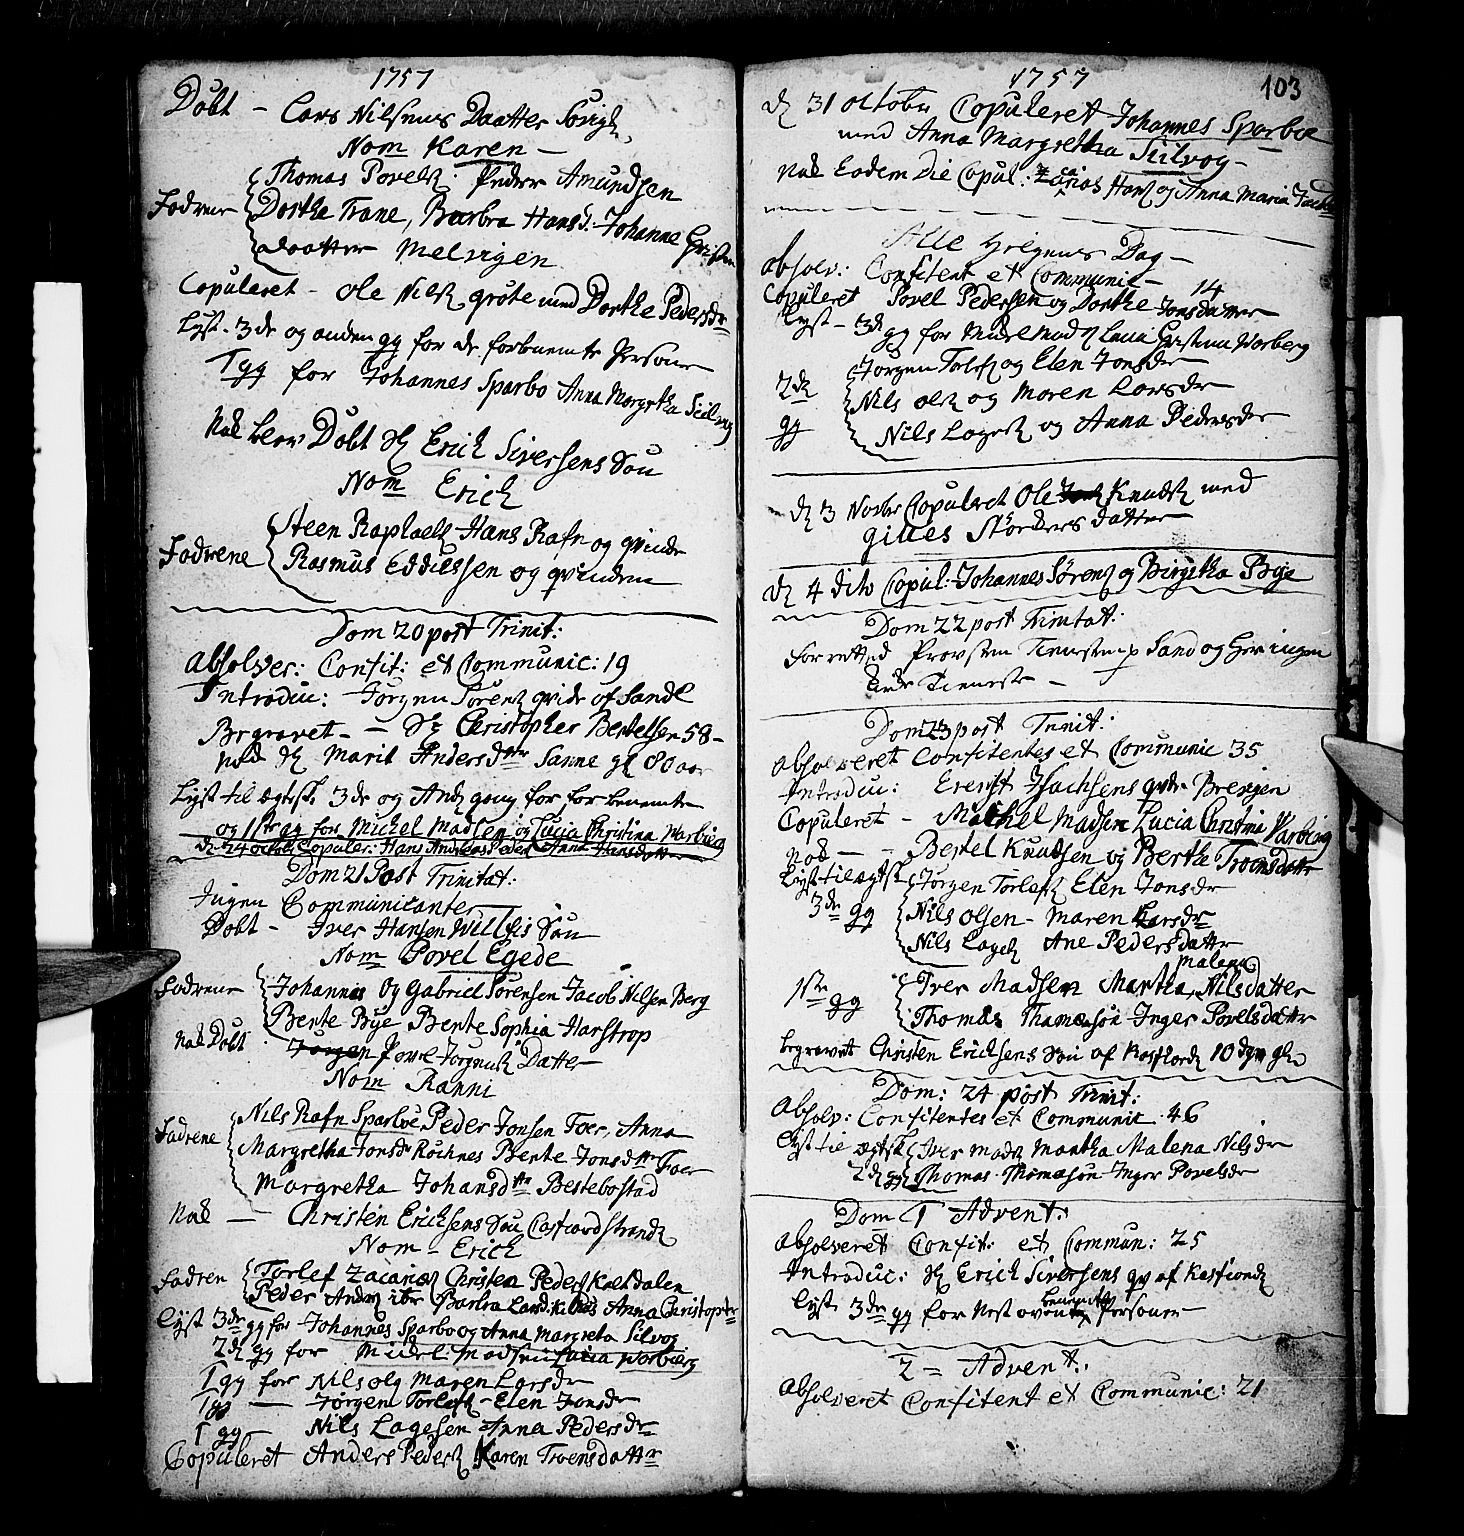 1757
Dobt - Lars Nilsens Daatter Sørvig
Nom Karen -
Thomas Povels: Peder Amundsen
Fadrene Dorthe Trane, Barbra Hansd. Johanne
daatter Melvigen
Copuleret - Ole Nils grøte med Dorthe Pedersdr
Lyst - 3de og anden gg for de forbnemte Persone
1 gg for Johannes Sparbo Anna Margretha Siilvog
Nok blev Dobt H Erich Siversens Søn
Nom Erich
Steen Raphaels Hans Rafn og qvinde
Fadrene Rasmus Eddiessen og qvinden
Dom 20 post Trinit:
Absolver: Confit: et Communic: 19
Introduc: Jørgen Sørens qvide af Sandt
Begravet - Christopher Bertelsen 58 -
Nok Marit Andersdttr Sanne gl 80 aar
Lyst til ægtesk. 3de og And gang for forbenemte
og 1ste gg for Michel Madsen og Lucia Christina Warbierg
d 24 octobr Copuler: Hans Andreas Peders Anna Hansdattr
Dom 21 Post Trinitat:
Ingen Communicanter
Dobt - Iver Hansen Willses Søn
Nom Povel Egede
Fadrene Johannes og Gabriel Sørensen Jacob Nilsen Berg
Bente Bye Bente Sophia Harstrop
Nok Dobt Jørgen Povel Jørgens Datter
Nom Ranni
Nils Rafn Sparboe, Peder Jonsen Foer, Anna
Fadrene Margretha Jonsdr Røchnes Bente Jonsdttr Foer
Margretha Johansdttr Bestebostad
Nok - Christen Erichsens Søn Castfiordstrand
Nom - Erich
Fadren Torlef Zacarias Christen Peders Kaldalen
Peder Anders Barbra Anna Christophr
Lyst 3de gg for Johannes Sparbo og Anna Margreta Silvog
2d gg for Michel Madsen Lucia Worbierg
1 gg for Nils ols Maren Larsdr
1 gg - Jørgen Torlefs - Elen Jonsdr
1 gg - Nils Lagesen Anna Pedersdr
Copuleret Anders Peders Karen Troensdattr
1757 103
d 31 octobr Copuleret Johannes Sparboe
med Anna Margretha Siilvog -
Nok Eodem Die Copul: Zacarias Hans og Anna Maria
Alle Helgens Dag -
Absolv: Confitent et Communic - 14
Copuleret Povel Pedersen og Dorthe Jonsdatter
Lyst - 3de gg for Michel Mads Lucia Christina Worberg
Jørgen Torlefs og Elen Jonsdr
2d Nils ols og Maren Larsdr
gg Nils Lages og Anna Pedersdr
d 3 Novbr Copuleret Ole Knuds med
Gilles Størkers datter
d 4 dito Copul: Johannes Sørens og Birgitha Bye
Dom 22 post Trinitat:
Forretted Provsten Tienesten p Sand og her ingen
Tieneste -
Dom 23 post Trinit:
Absolveret Confitentes et Communic 35
Introduc: Erenst Isachsens qvde Brevigen
Copuleret - Michel Madsen Lucia Christine Warbierg
Nok - - Bertel Knudsen og Berthe Troensdattr
Lyst til ægtsk Jørgen Torlefs Elen Jonsdr
3de gg Nils Olsen - Maren Larsdr
Nils Lages Ane Pedersdattr
Malena
1ste gg Iver Madsen Martha Nilsdatter
Thomas Thomesøn Inger Povelsdattr
begravet Christen Erichsens Søn af Kasfiord 10 dge gl
Dom: 24 post Trinit:
Absolv: Confitentes et Communic 46
Lyst til ægtsk Iver Mads Martha Malena Nilsdr
2d gg Thomas Thomasøn Inger Povelsdr
Dom 1 Advent:
Absolveret Confit: et Commun: 25
Introduc: Erich Siversens qv af Kasfiord
Lyst 3de gg for Nest oven benemte Persone
2 = Advent:
Absolveret Confitent et Communic: 21